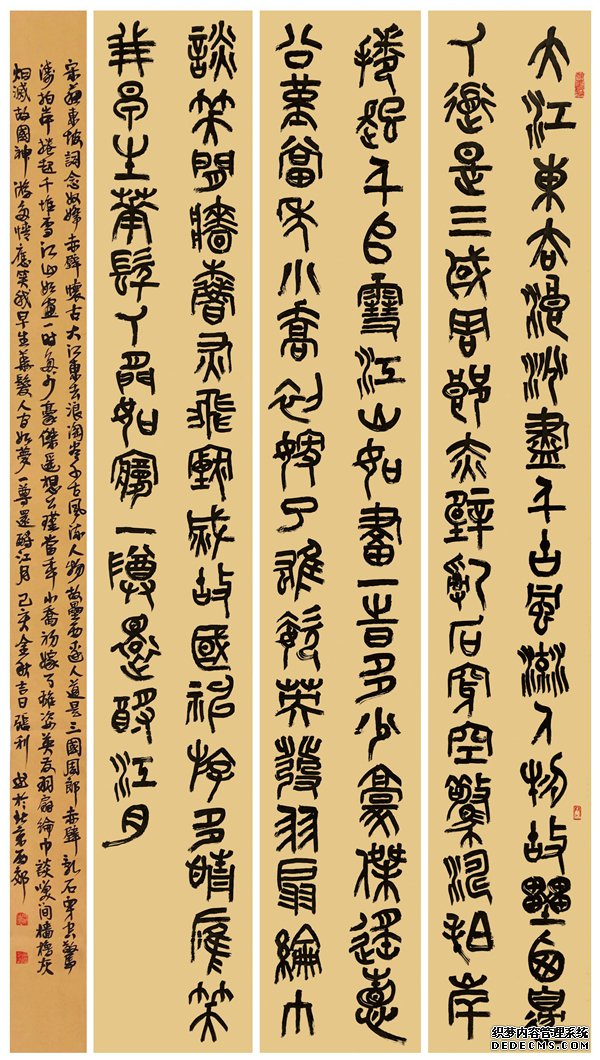 大江東去浪淘盡千古風流人物故壘西邊
人道是三國周郎赤壁亂石穿空驚濤拍岸
捲起千堆雪江山如畫一時多少豪傑遙想
公瑾當年小喬初嫁了雄姿英發羽扇綸巾
談笑間檣櫓灰飛煙滅故國神游多情應笑
我早生華髮人間如夢一尊還酹江月
宋蘇東坡詞念奴嬌赤壁懷古大江東去浪淘盡千古風流人物故壘西邊人道是三國周郎赤壁亂石穿空驚
濤拍岸捲起千堆雪江山如畫一時多少豪傑遙想公瑾當年小喬初嫁了雄姿英發羽扇綸巾談笑间檣櫓灰
烟滅故國神游多情應笑我早生華髮人間如夢一尊還酹江月己亥金秋吉日張利書於北京西郊
织梦内容管理系统
DEDECMS.COM